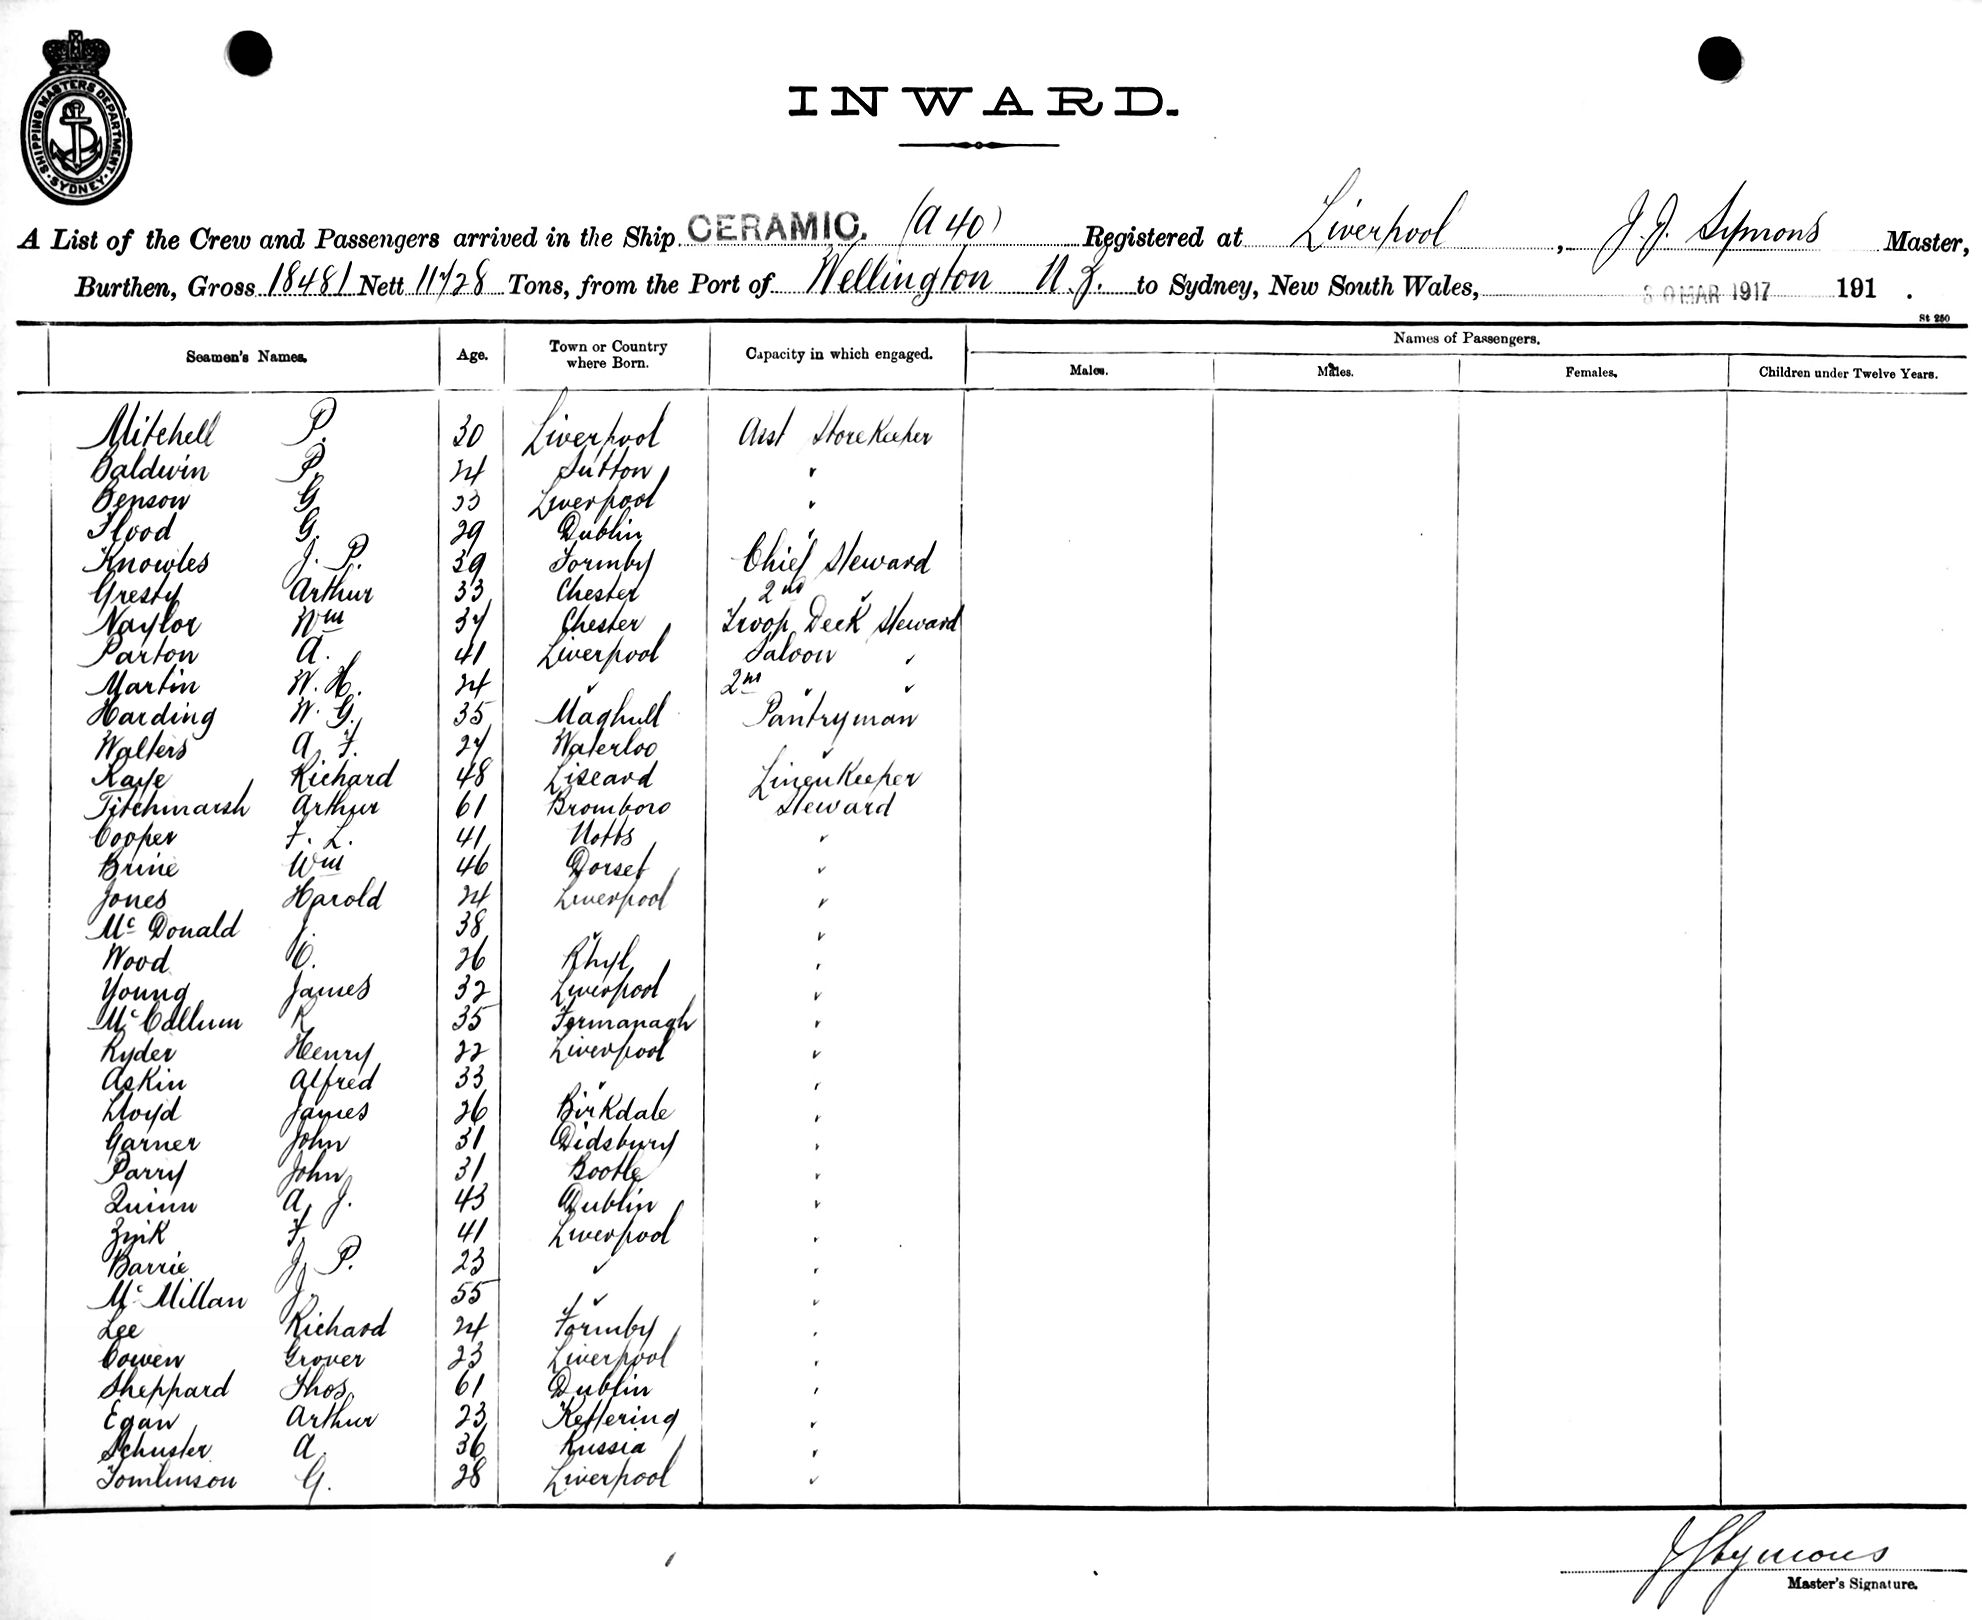 SHIPPING MASTERS DEPARTMENT. SYDNEY.
INWARD.
A List of the Crew and Passengers arrived in the Ship CERAMIC. (A 40) Registered at Liverpool, J. J. Symons Master,
Burthen, Gross 18481 Nett 11728 Tons, from the Port of Wellington N.Z. to Sydney, New South Wales, 30 MAR 1917 191 .
St 250
Seamen's Names. Age. Town or Country where Born. Capacity in which engaged. Names of Passengers.
Males. Males. Females. Children under Twelve Years.
Mitchell P. 30 Liverpool Asst Storekeeper
Baldwin P. 24 Sutton "
Benson G 33 Liverpool "
Flood G. 29 Dublin "
Knowles J. P. 39 Formby Chief Steward
Gresty Arthur 33 Chester 2nd "
Naylor Wm 37 Chester Troop Deck Steward
Parton A. 41 Liverpool Saloon "
Martin W. H. 24 " 2nd " "
Harding W. G. 35 Maghull Pantryman
Walters A. F. 27 Waterloo "
Kaye Richard 48 Liscard Linenkeeper
Titchmarsh Arthur 61 Bromboro Steward
Cooper F. L. 41 Notts "
Brine Wm 46 Dorset "
Jones Harold 24 Liverpool "
Mc Donald J. 38 " "
Wood C. 26 Rhyl "
Young James 32 Liverpool "
Mc Callum R 35 Fermanagh "
Ryder Henry 22 Liverpool "
Askin Alfred 33 " "
Lloyd James 26 Birkdale "
Garner John 31 Didsbury "
Parry John 31 Bootle "
Quinn A. J. 43 Dublin "
Zink F. 41 Liverpool "
Barrie J. P. 23 " "
Mc Millan J. 55 " "
Lee Richard 24 Formby "
Cowen Grover 23 Liverpool "
Sheppard Thos 61 Dublin "
Egan Arthur 23 Kettering "
Schuster A. 36 Russia "
Tomlinson G. 28 Liverpool "
J J Symons
Master's Signature.